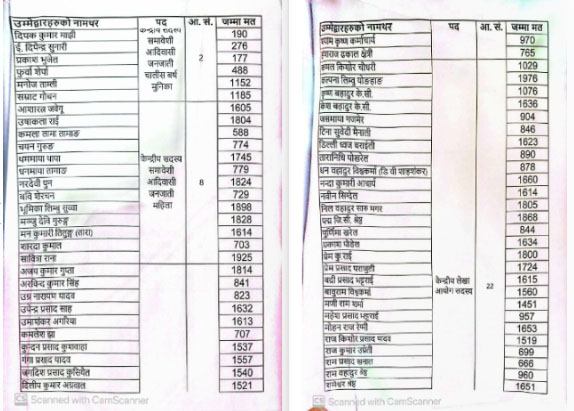 उम्मेद्वारहरुको नामथर पद आ. सं. जम्मा मत
दिपक कुमार माझी 190
ई. दिपेन्द्र सुनारी 276
प्रकाश भुजेल 177
फुर्वा शेर्पा 488
मनोज ताम्ली 1152
सम्राट गौचन 1185
केन्द्रीय सदस्य
समावेशी
आदिवासी
जनजाती
चालीस वर्ष
मुनिका
2
आशारत्न जवेगू 1605
उषाकला राई 1804
कमला लामा तामाङ 588
चयन गुरुङ 774
धनमाया थापा 1745
धनमाया तामाङ 779
नरदेवी पुन 1824
बबि शेरचन 729
भूमिका लिम्बु सुब्बा 1898
मञ्जु देवि गुरुङ 1828
मन कुमारी लिम्बु (तारा) 1614
शारदा कुमाल 703
सावित्रा राना 1925
केन्द्रीय सदस्य
समावेशी
आदिवासी
जनजाती
महिला
8
अजय कुमार गुप्ता 1814
अरविन्द कुमार सिंह 841
उग्र नारायण यादव 823
उपेन्द्र प्रसाद साह 1632
उमाशंकर अगरिया 1613
कमलेश झा 707
कुन्दन प्रसाद कुशवाहा 1537
गंगा प्रसाद यादव 1557
जगदिश प्रसाद कुसियैत 1540
दिलीप कुमार अग्रवाल 1521
CS Scanned with CamScanner
उम्मेद्वारहरुको नामथर पद आ. सं. जम्मा मत
श्याम कृष्ण कर्माचार्य 970
हंसराज ढकाल क्षेत्री 765
कमल किशोर चौधरी 1029
कल्पना लिम्बु पोङहाङ 1976
कृष्ण बहादुर के.सी. 1076
केश बहादुर के.सी. 1636
जसमाया गजमेर 904
टिना सुवेदी मैनाली 846
डिल्ली ध्वज बराईली 1623
तारानिधि पोखरेल 890
धन बहादुर विश्वकर्मा 878
नन्दा कुमारी आचार्य 1660
नवीन सिग्देल 1614
निल बहादुर सारु मगर 1805
पद्म जि.सी. श्रेष्ठ 1868
पूर्णिमा खरेल 844
प्रकाश पौडेल 1634
प्रेम कु.राई 1800
प्रेम प्रसाद पराजुली 1724
बद्री प्रसाद भट्टराई 1615
बाबुराम विश्वकर्मा 1560
मजी राम शर्मा 1451
महेश प्रसाद भट्टराई 957
मोहन राज रेग्मी 1653
राज किशोर प्रसाद यादव 1519
राज कुमार उप्रेती 699
राम प्रसाद खनाल 666
राम बहादुर श्रेष्ठ 960
रामेश्वर श्रेष्ठ 1651
केन्द्रीय लेखा
आयोग सदस्य
22
CS Scanned with CamScanner